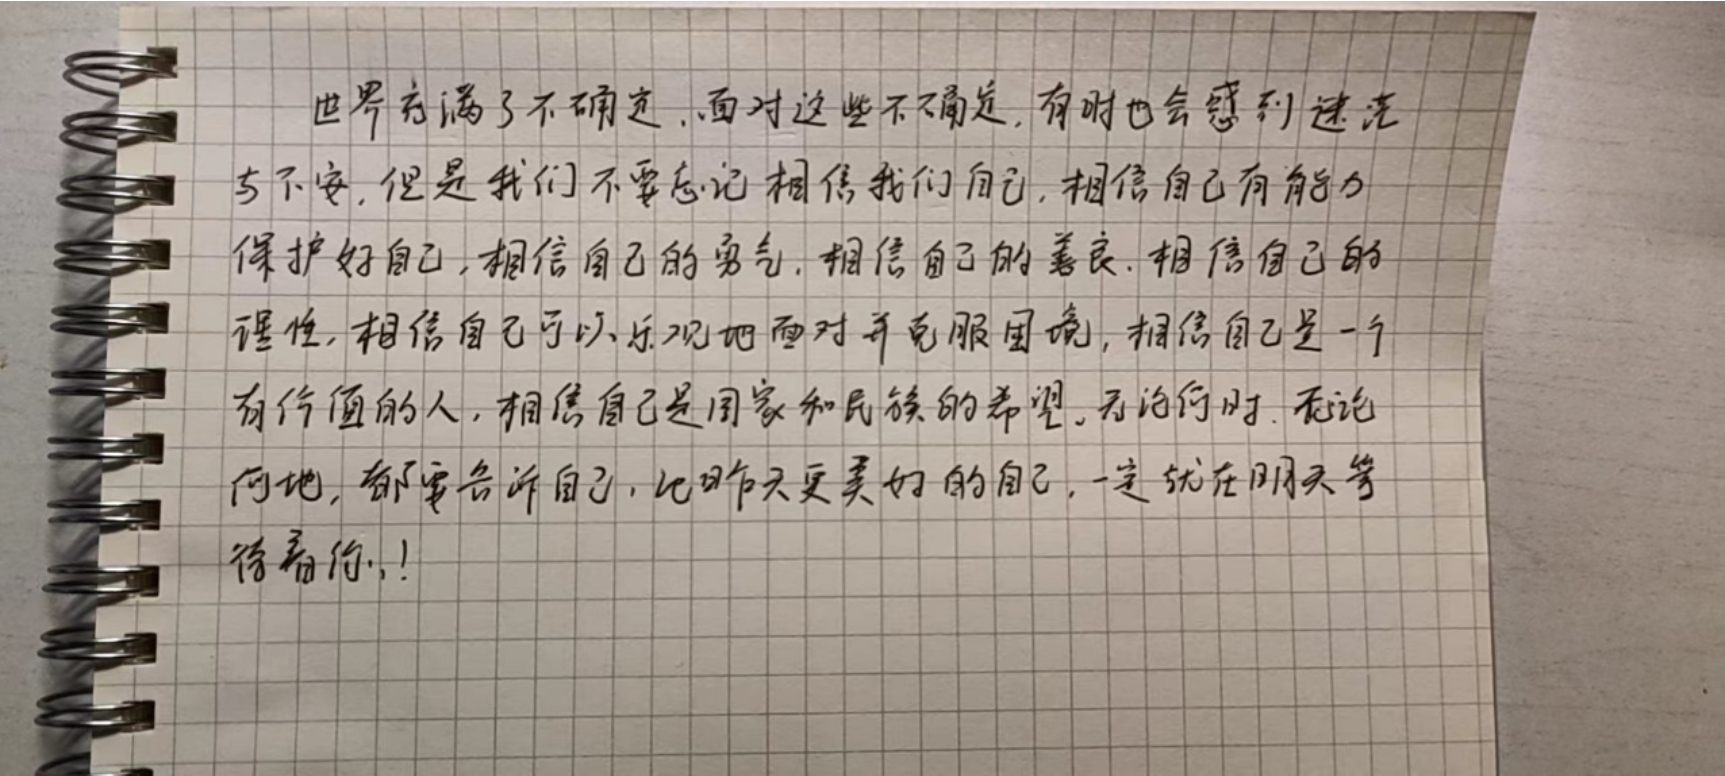 世界充满了不确定，面对这些不确定，有时也会感到迷茫
与不安，但是我们不要忘记相信我们自己，相信自己有能力
保护好自己，相信自己的勇气，相信自己的善良，相信自己的
理性，相信自己可以乐观地面对并克服困境，相信自己是一个
有价值的人，相信自己是国家和民族的希望。无论何时，无论
何地，都要告诉自己，比昨天更美好的自己，一定就在明天等
待着你！